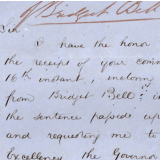 Bridget Bell
Sir,
I have the honor
the receipt of your comm
16th instant, inclosing
from Bridget Bell
the sentence passed up
and requesting me to
Excellency the Governor